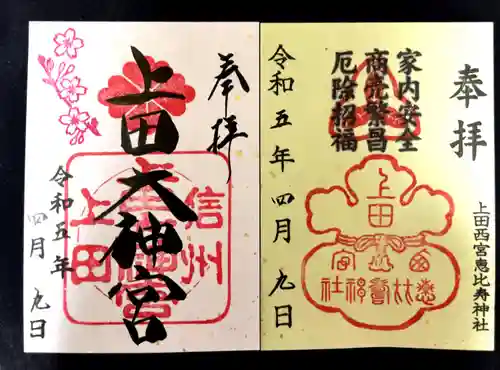 奉拝
上田大神宮
信州
上田
令和五年
四月九日
奉拝
上田西宮恵比寿神社
家内安全
商売繁昌
厄除招福
上田
令和五年四月九日